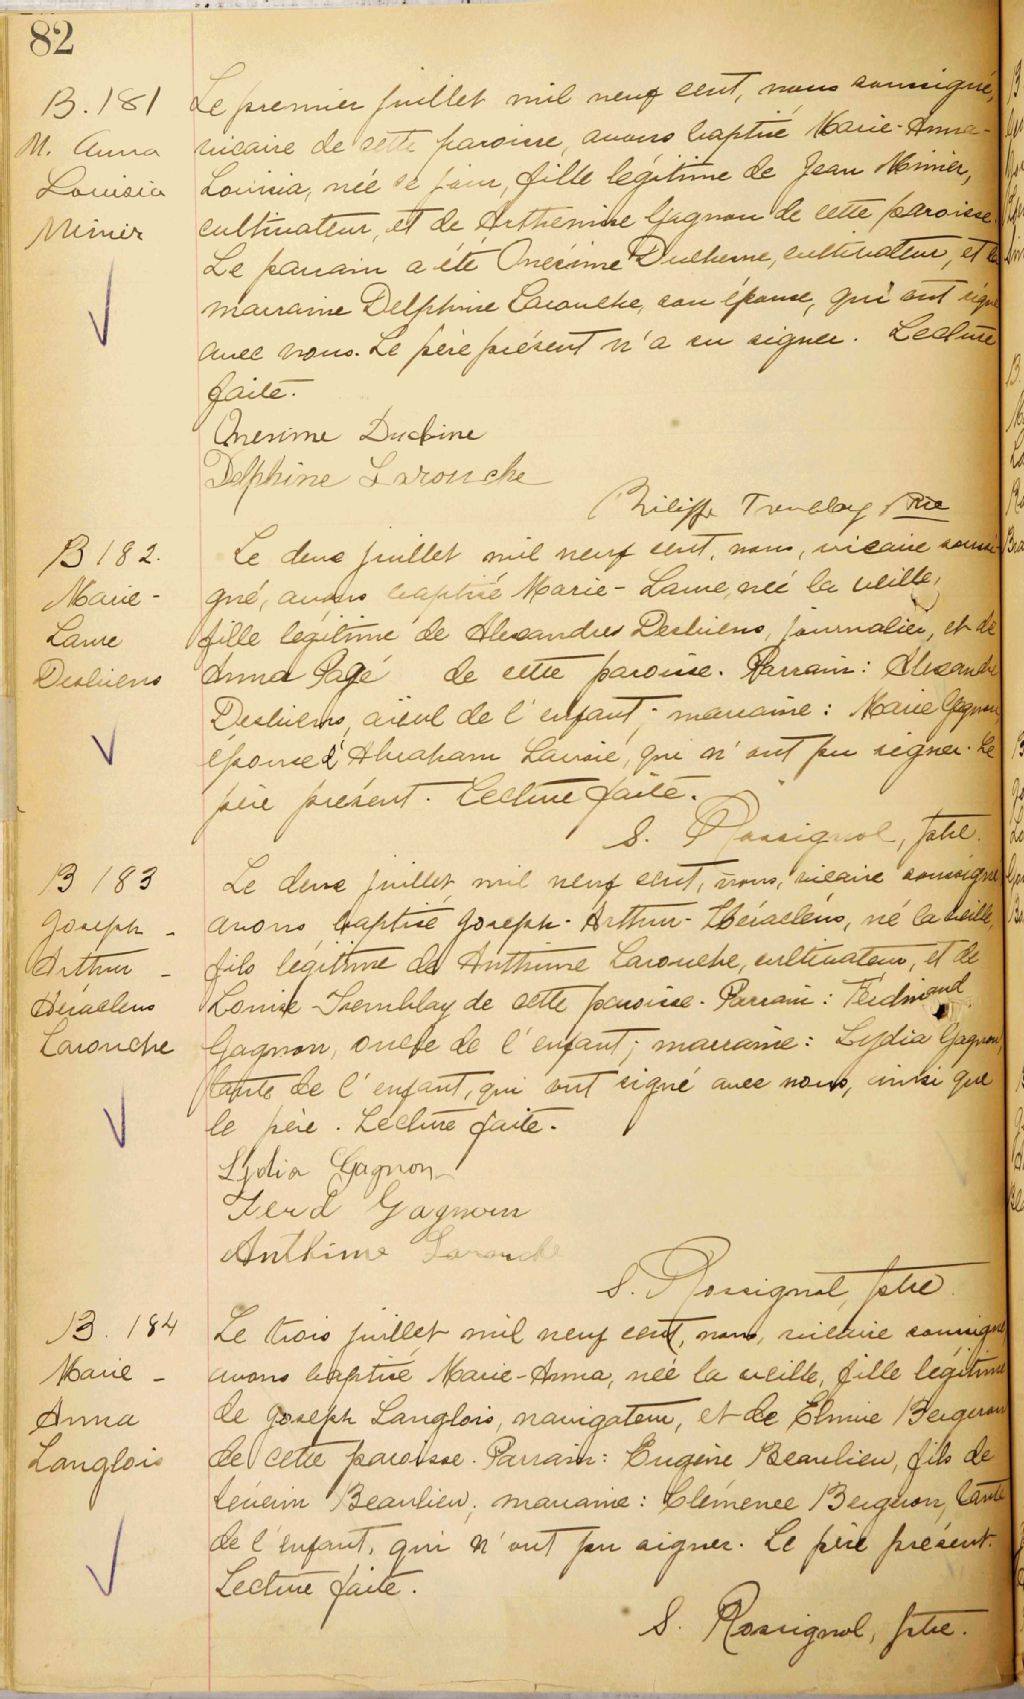 82
B. 181
M. Anna
Louisia
Minier
Le premier juillet mil neuf cent, nous soussigné,
vicaire de cette paroisse, avons baptisé Marie-Anna-
Louisia, née ce jour, fille légitime de Jean Minier,
cultivateur, et de Arthémise Gagnon de cette paroisse.
Le parrain a été Onésime Duchesne, cultivateur, et la
marraine Delphine Larouche, son épouse, qui ont signé
avec nous. Le père présent n'a su signer. Lecture
faite.
Onesime Duchine
Delphine Larouche
Philippe Tremblay Ptre
B 182.
Marie-
Laure
Desbiens
Le deux juillet mil neuf cent, nous, vicaire soussi-
gné, avons baptisé Marie-Laure, née la veille,
fille légitime de Alexandre Desbiens, journalier, et de
Anna Pagé de cette paroisse. Parrain: Alexandre
Desbiens, aïeul de l'enfant; marraine: Marie Gagnon,
épouse d'Abraham Lavoie, qui n'ont pu signer. Le
père présent. Lecture faite.
S. Rossignol, ptre.
B 183
Joseph-
Arthur-
Héraclius
Larouche
Le deux juillet mil neuf cent, nous, vicaire soussigné
avons baptisé Joseph-Arthur-Héraclius, né la veille,
fils légitime de Anthime Larouche, cultivateur, et de
Louise Tremblay de cette paroisse. Parrain: Ferdinand
Gagnon, oncle de l'enfant; marraine: Lydia Gagnon,
tante de l'enfant, qui ont signé avec nous, ainsi que
le père. Lecture faite.
Lydia Gagnon
Ferd Gagnon
Anthime Larouche
S. Rossignol, ptre.
B. 184
Marie-
Anna
Langlois
Le trois juillet mil neuf cent, nous, vicaire soussigné
avons baptisé Marie-Anna, née la veille, fille légitime
de Joseph Langlois, navigateur, et de Elmire Bergeron
de cette paroisse. Parrain: Eugène Beaulieu, fils de
Séverin Beaulieu; marraine: Clémence Bergeron, tante
de l'enfant, qui n'ont pu signer. Le père présent.
Lecture faite.
S. Rossignol, ptre.